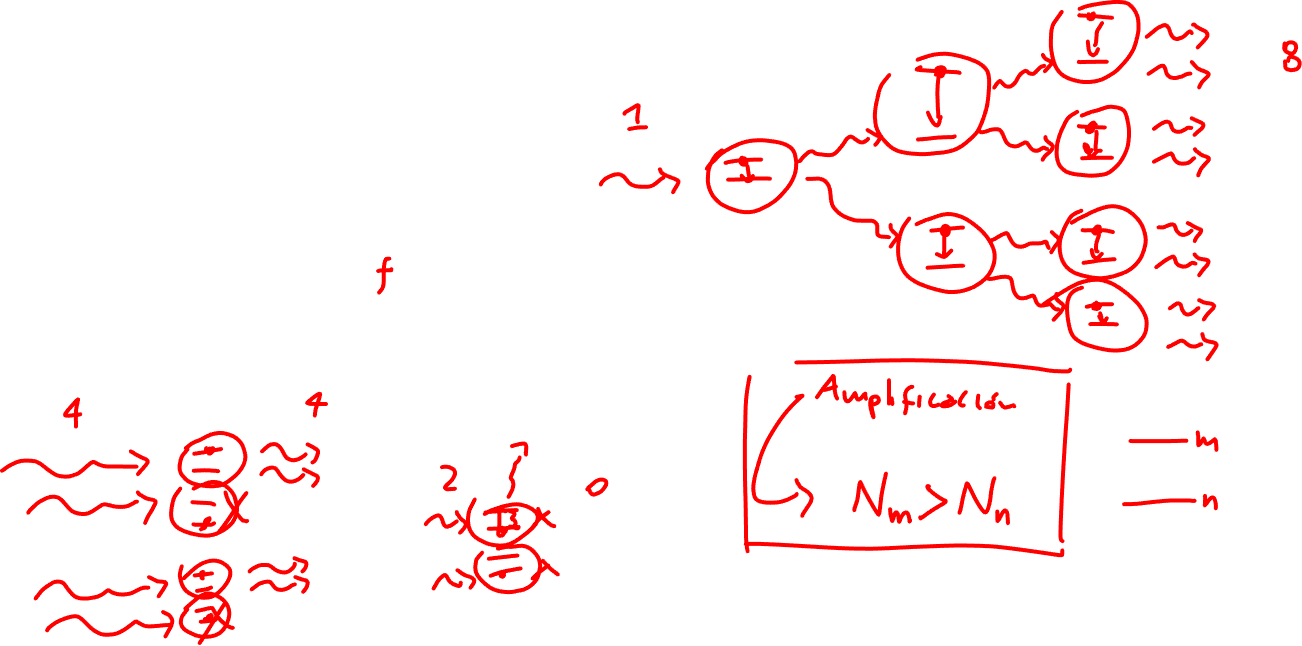 8
1
f
4
4
2
0
Amplificación
m
n
Nm > Nn